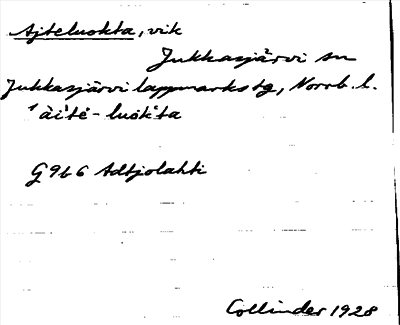 Ajteluokta, vik
Jukkasjärvi sn
Jukkasjärvi lappmarks tg, Norrb. l.
'àitè-luòkta
G 966 Adtjolahti
Collinder 1928